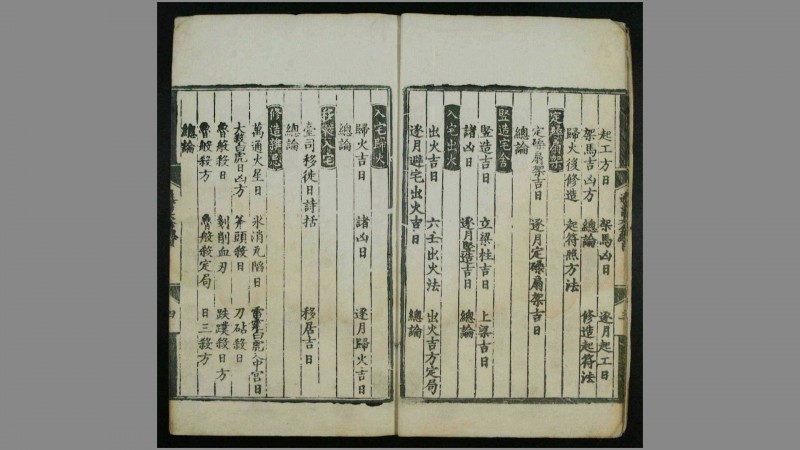 起工方日 架馬凶日 逐月起工日
架馬吉凶方 總論
歸火後修造 起符照方法 修造起符法
定磉扇架
定磉扇架吉日 逐月定磉扇架吉日
總論
竪造宅舍
竪造吉日 立梁柱吉日 上梁吉日
諸凶日 逐月竪造吉日 總論
入宅出火
出火吉日 六壬出火法 出火吉方定局
逐月避宅出火吉日 總論
三
入宅歸火
歸火吉日 諸凶日 逐月歸火吉日
總論
移徙入宅
臺司移徙日詩括 移居吉日
總論
修造
萬通火星日 氷消瓦陷日 雷霆白虎入中宮日
大殺白虎日凶方 斧頭殺日 刀砧殺日
魯般殺日 剝削血刃 跌蹼殺日方
魯般殺方 魯般殺定局 日三殺方
總論
四